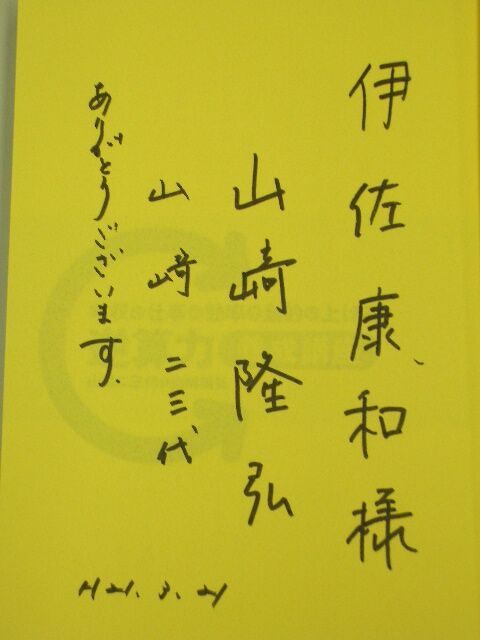 伊佐康和様
山﨑隆弘
山﨑二三代
ありがとうございます。
H21.3.21
逆算力